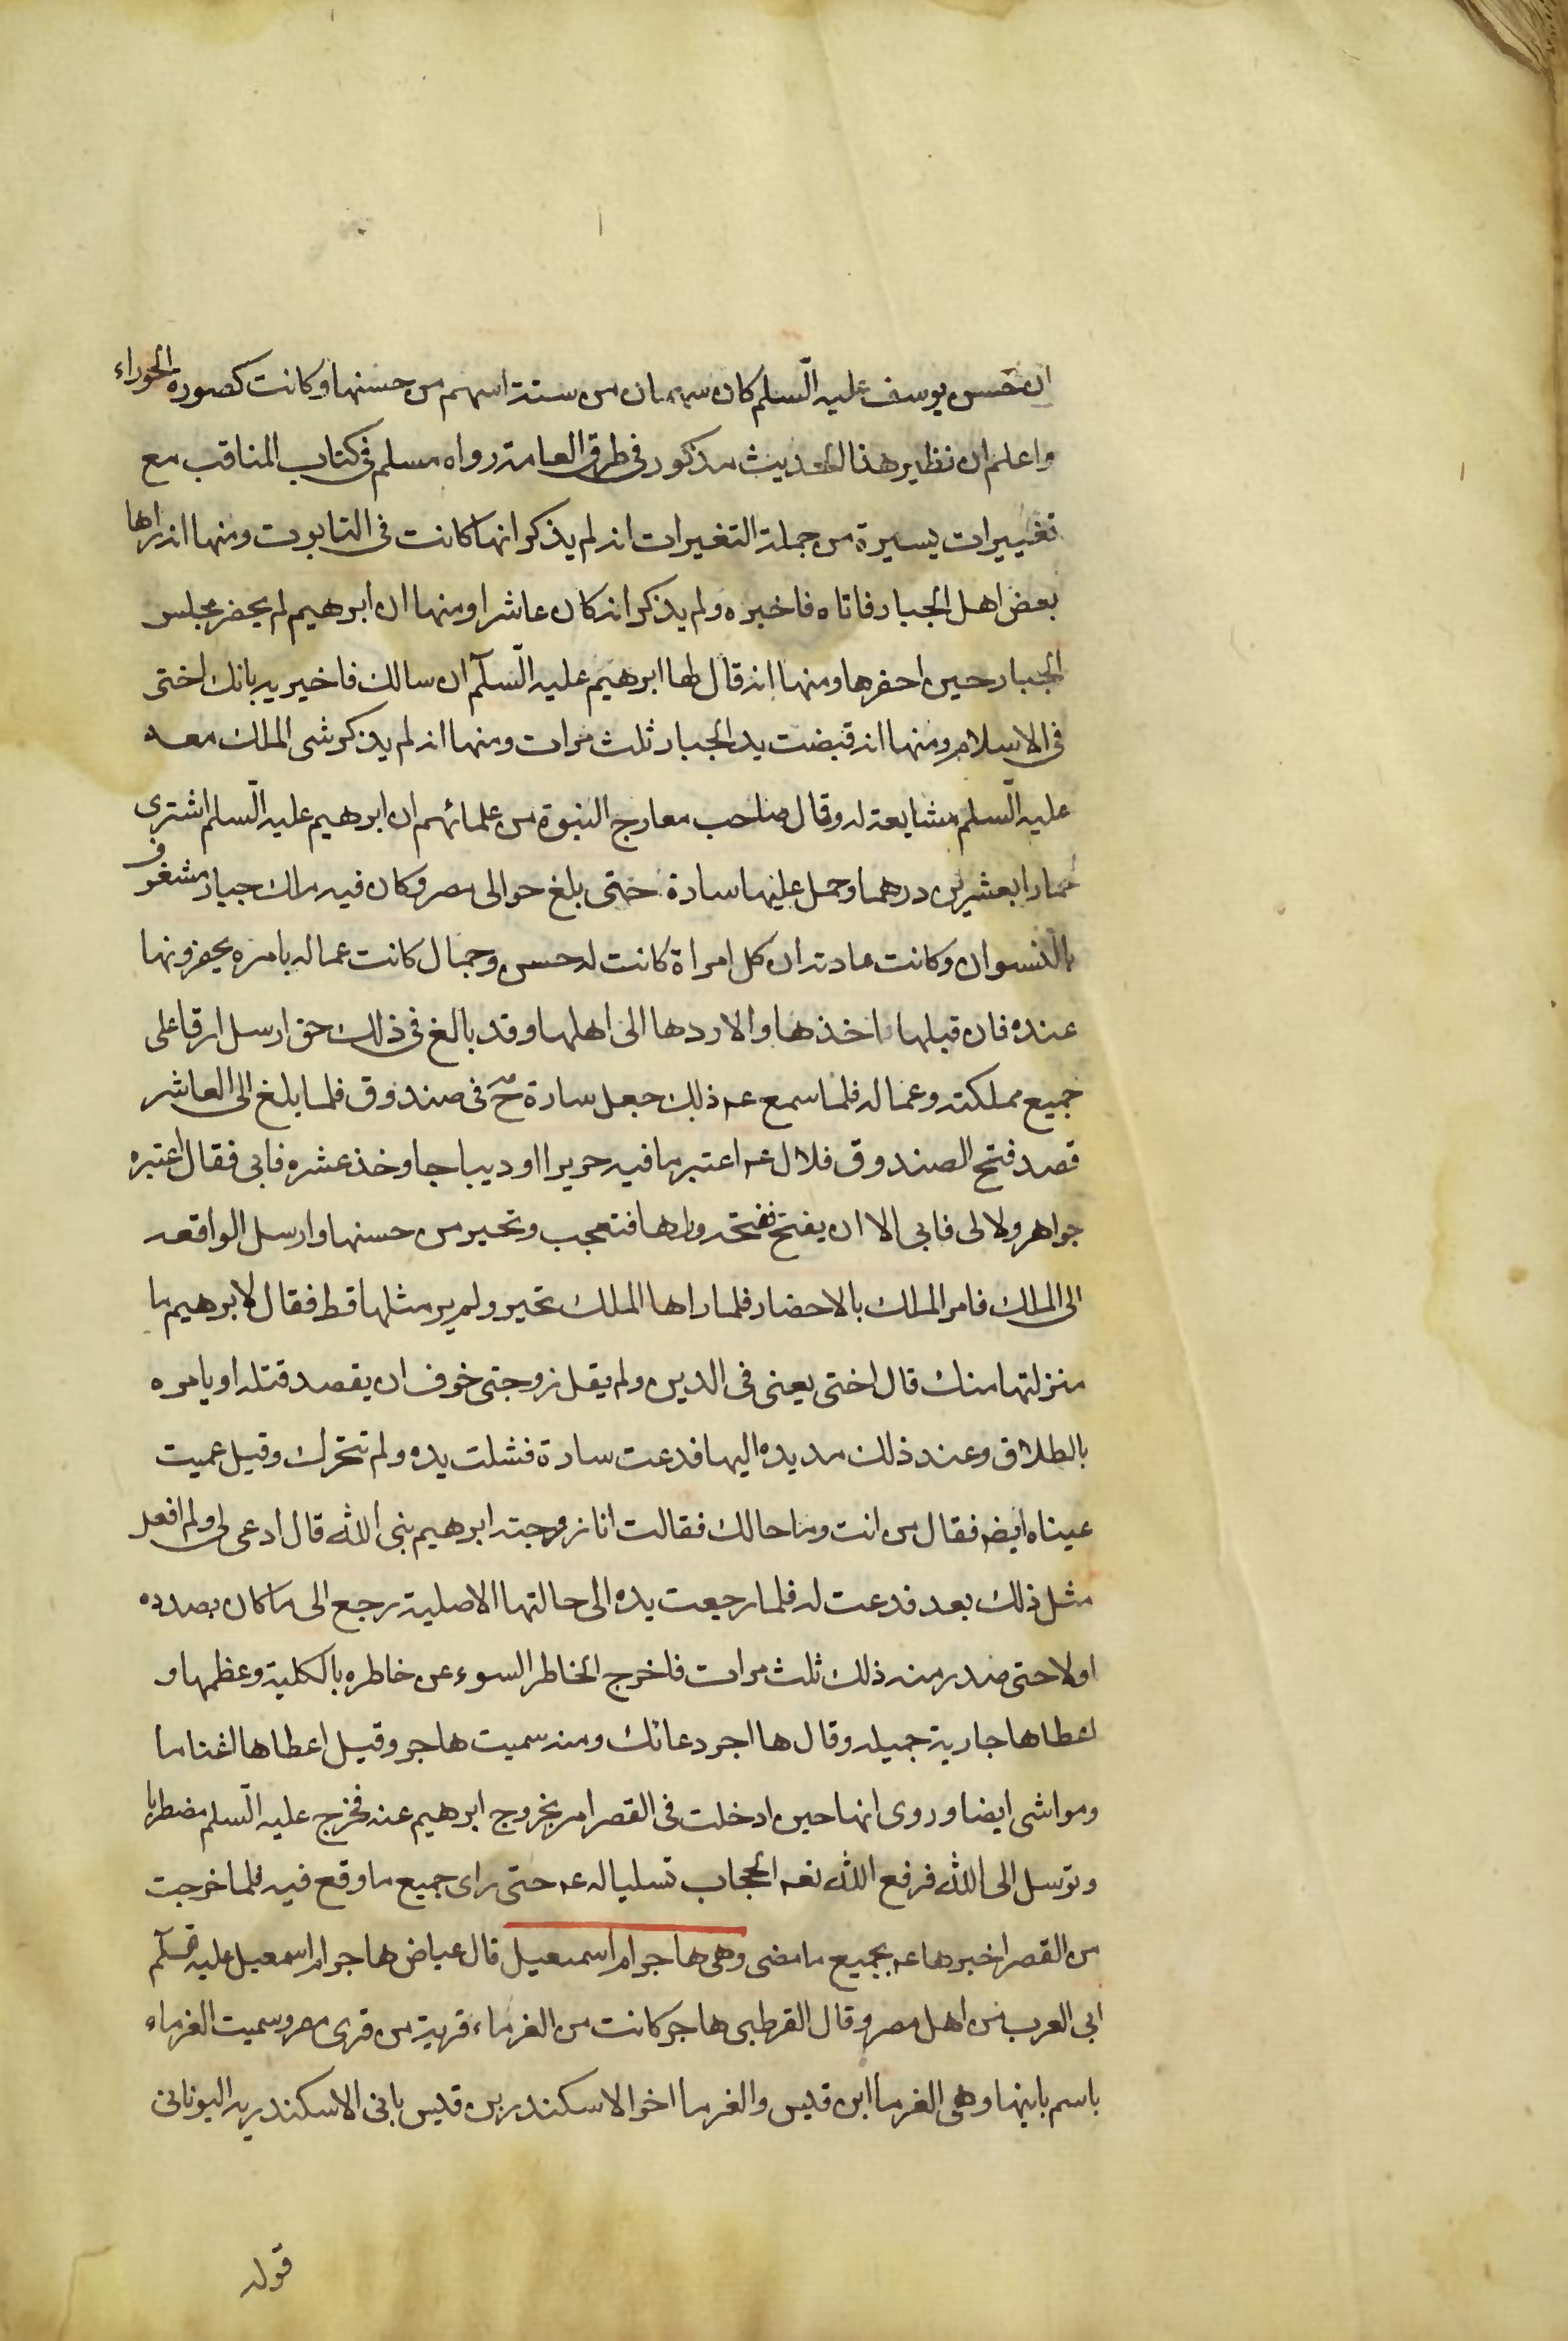 ان حسن يوسف عليه السّلم كان سهمان من ستة اسهم من حسنها وكانت كصورة الحوراء
واعلم ان نظير هذا الحديث مذكور فى طرق العامة رواه مسلم فى كتاب المناقب مع
تغييرات يسيرة من جملة التغيرات انه لم يذكر انها كانت فى التابوت ومنها انه راها
بعض اهل الجبار فاتاه فاخبره ولم يذكر انه كان عاشرا ومنها ان ابرهيم لم يحضر مجلس
الجبار حين احضرها ومنها انه قال لها ابرهيم عليه السّلم ان سالك فاخبريه بانك اختى
فى الاسلام ومنها انه قبضت يد الجبار ثلث مرات ومنها انه لم يذكر مشى الملك معه
عليه السّلم مشايعة له وقال صاحب معارج النبوة من علمائهم ان ابرهيم عليه السّلم اشترى
حمارا بعشرين درهما وحمل عليها سارة حتى بلغ حوالى مصر وكان فيه ملك جبار مشغوف
بالنسوان وكانت عادته ان كل امراة كانت له حسن وجمال كانت عماله بامره يحضرونها
عنده فان قبلها اخذها والا ردها الى اهلها وقد بالغ فى ذلك حتى ارسل ارقا على
جميع مملكته وعماله فلما سمع عم ذلك جعل سارة ح فى صندوق فلما بلغ الى العاشر
قصد فتح الصندوق فقال عم اعتبر ما فيه حريرا او ديباجا وخذ عشره فابى فقال اعتبره
جواهر ولالى فابى الا ان يفتح ففتحه وراها فتعجب وتحير من حسنها وارسل الواقعه
الى الملك فامر الملك بالاحضار فلما راها الملك تحير ولم ير مثلها قط فقال لابرهيم ما
منزلتها منك قال اختى يعنى فى الدين ولم يقل زوجتى خوف ان يقصد قتله او يامره
بالطلاق وعند ذلك مد يده اليها فدعت سارة فشلت يده ولم تتحرك وقيل عميت
عيناه ايضه فقال من انت وما حالك فقالت انا زوجته ابرهيم نبى الله قال ادعى لى ولم افعل
مثل ذلك بعد فدعت له فلما رجعت يده الى حالتها الاصلية رجع الى ما كان بصدده
اولا حتى صدر منه ذلك ثلث مرات فاخرج الخاطر السوء عن خاطره بالكلية وعظمها و
اعطاها جارية جميله وقال ها اجر دعائك ومنه سميت هاجر وقيل اعطاها اغناما
ومواشى ايضا وروى انها حين ادخلت فى القصر امر بخروج ابرهيم عنه فخرج عليه السّلم مضطربا
وتوسل الى الله فرفع الله تعه الحجاب تسليا له عم حتى راى جميع ما وقع فيه فلما خرجت
من القصر اخبرها عم بجميع ما مضى وهى هاجر ام اسمعيل قال عياض هاجر ام اسمعيل عليه السّلم
ابى العرب من اهل مصر وقال القرطبى هاجر كانت من الغرماء قرية من قرى مصر وسميت الغرماء
باسم بانيها وهى الغرما ابن قديس والغرما اخو الاسكندر بن قديس بانى الاسكندريه اليونانى
قوله